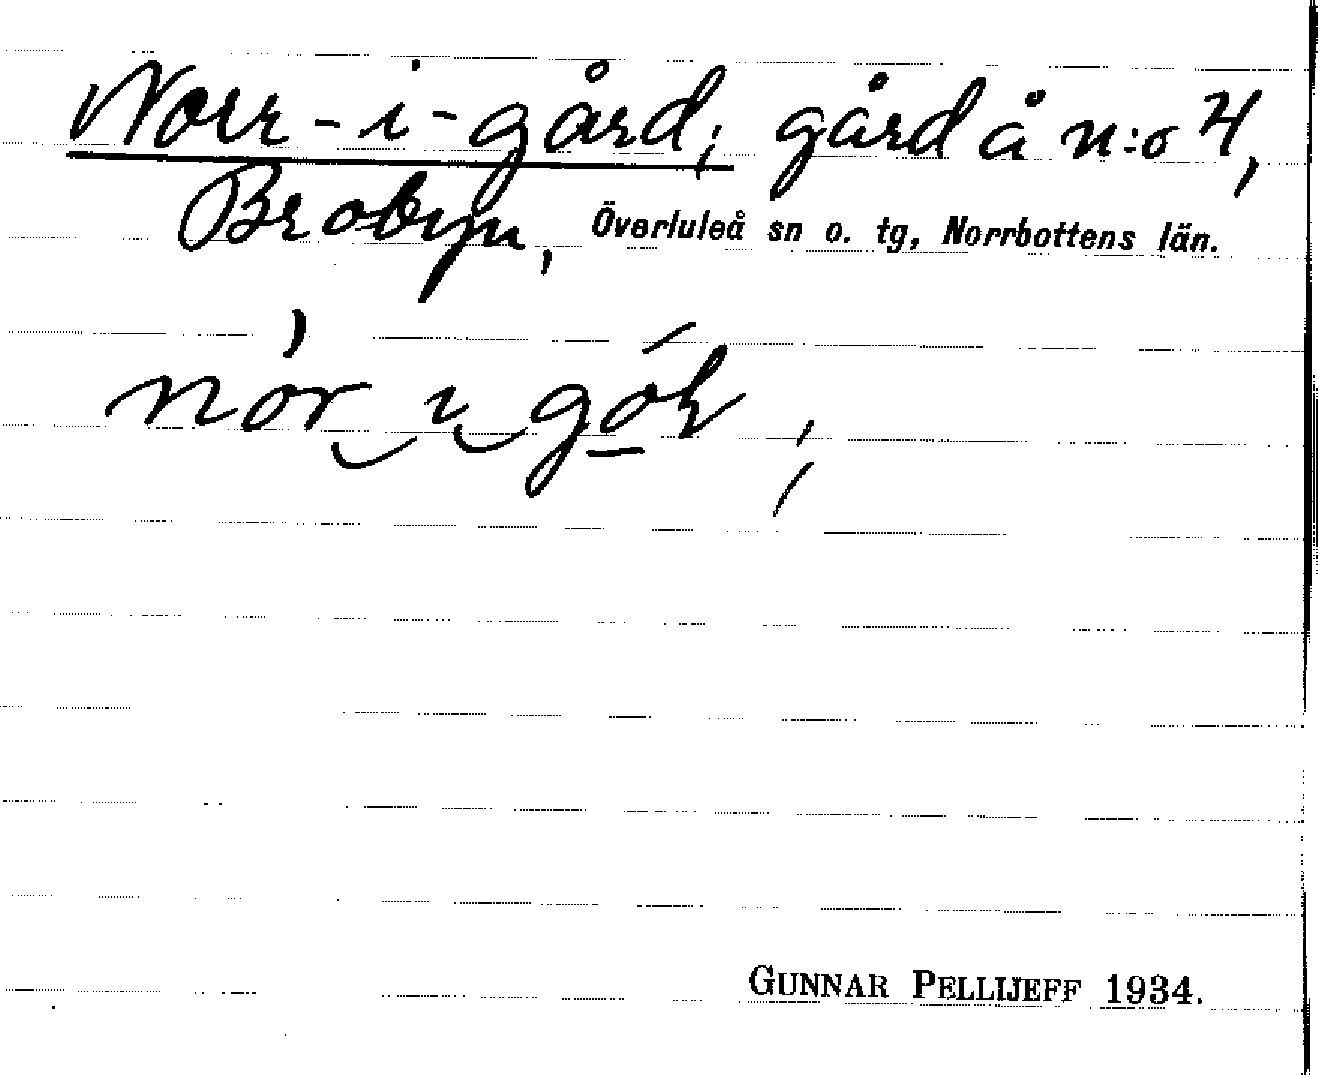 Norr-i-gård; gård å n:o 4,
Brobyn, Överluleå sn o. tg, Norrbottens län.
GUNNAR PELLIJEFF 1934.